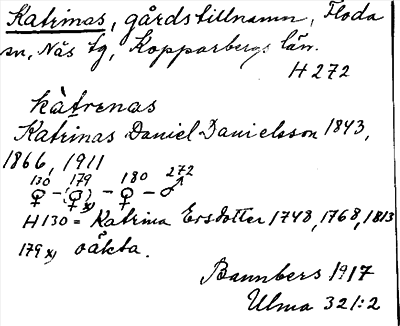 Katrinas, gårdstillnamn, Floda
sn, Nås tg, Kopparbergs län.
H 272
kàtrenas
Katrinas Daniel Danielsson 1843,
1866, 1911
130 179 180 272
♀ – (♀)x) – ♀ – ♂
H 130 = Katrina Ersdotter 1748, 1768, 1813
179 x) oäkta.
Bannbers 1917
Ulma 321:2